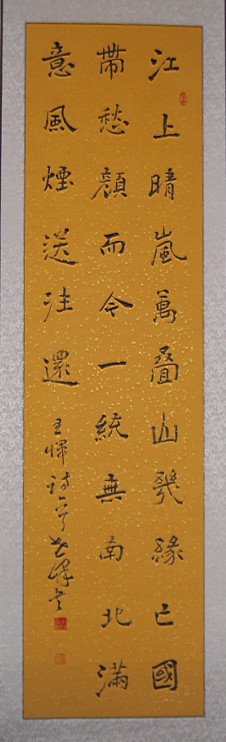 江上晴嵐萬疊山幾緣亡國
帶愁顏而今一統無南北滿
意風煙送往還
王惲詩一首